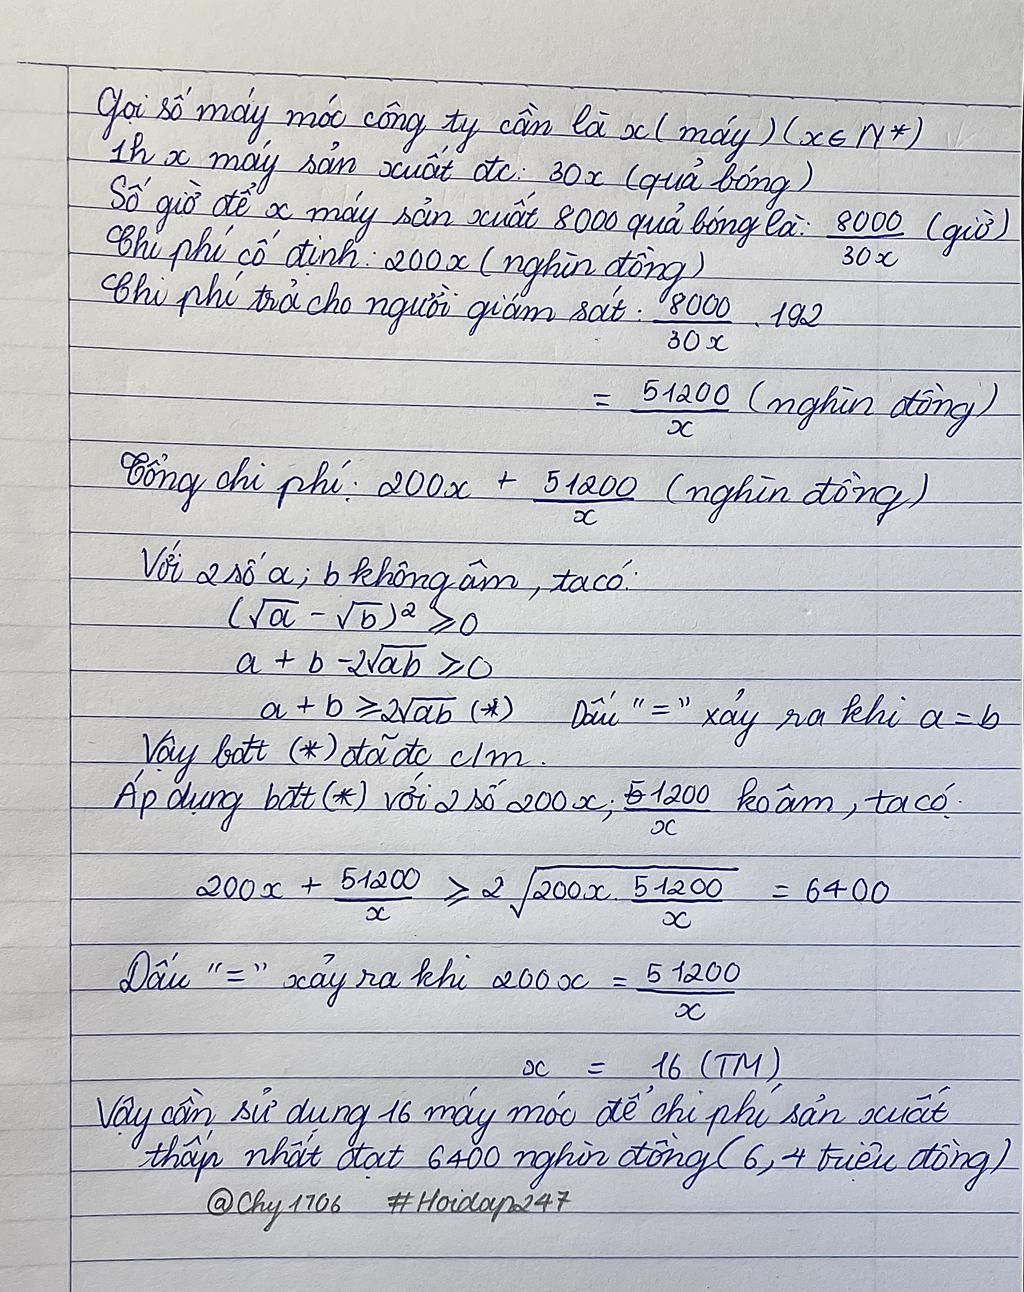 Gọi số máy móc công ty cần là x (máy) (x ∈ N*)
1h x máy sản xuất đc: 30x (quả bóng)
Số giờ để x máy sản xuất 8000 quả bóng là: 8000/30x (giờ)
Chi phí cố định: 200x (nghìn đồng)
Chi phí trả cho người giám sát: 8000/30x . 192
= 51200/x (nghìn đồng)
Tổng chi phí: 200x + 51200/x (nghìn đồng)
Với 2 số a; b không âm, ta có:
(√a - √b)² ⩾ 0
a + b - 2√ab ⩾ 0
a + b ⩾ 2√ab (*) Dấu "=" xảy ra khi a = b
Vậy bđt (*) đã đc c/m.
Áp dụng bđt (*) với 2 số 200x; 51200/x ko âm, ta có:
200x + 51200/x ⩾ 2√(200x . 51200/x) = 6400
Dấu "=" xảy ra khi 200x = 51200/x
x = 16 (TM)
Vậy cần sử dung 16 máy móc để chi phí sản xuất
thấp nhất đạt 6400 nghìn đồng (6,4 triệu đồng)
@Chy1706 #Hoidap247